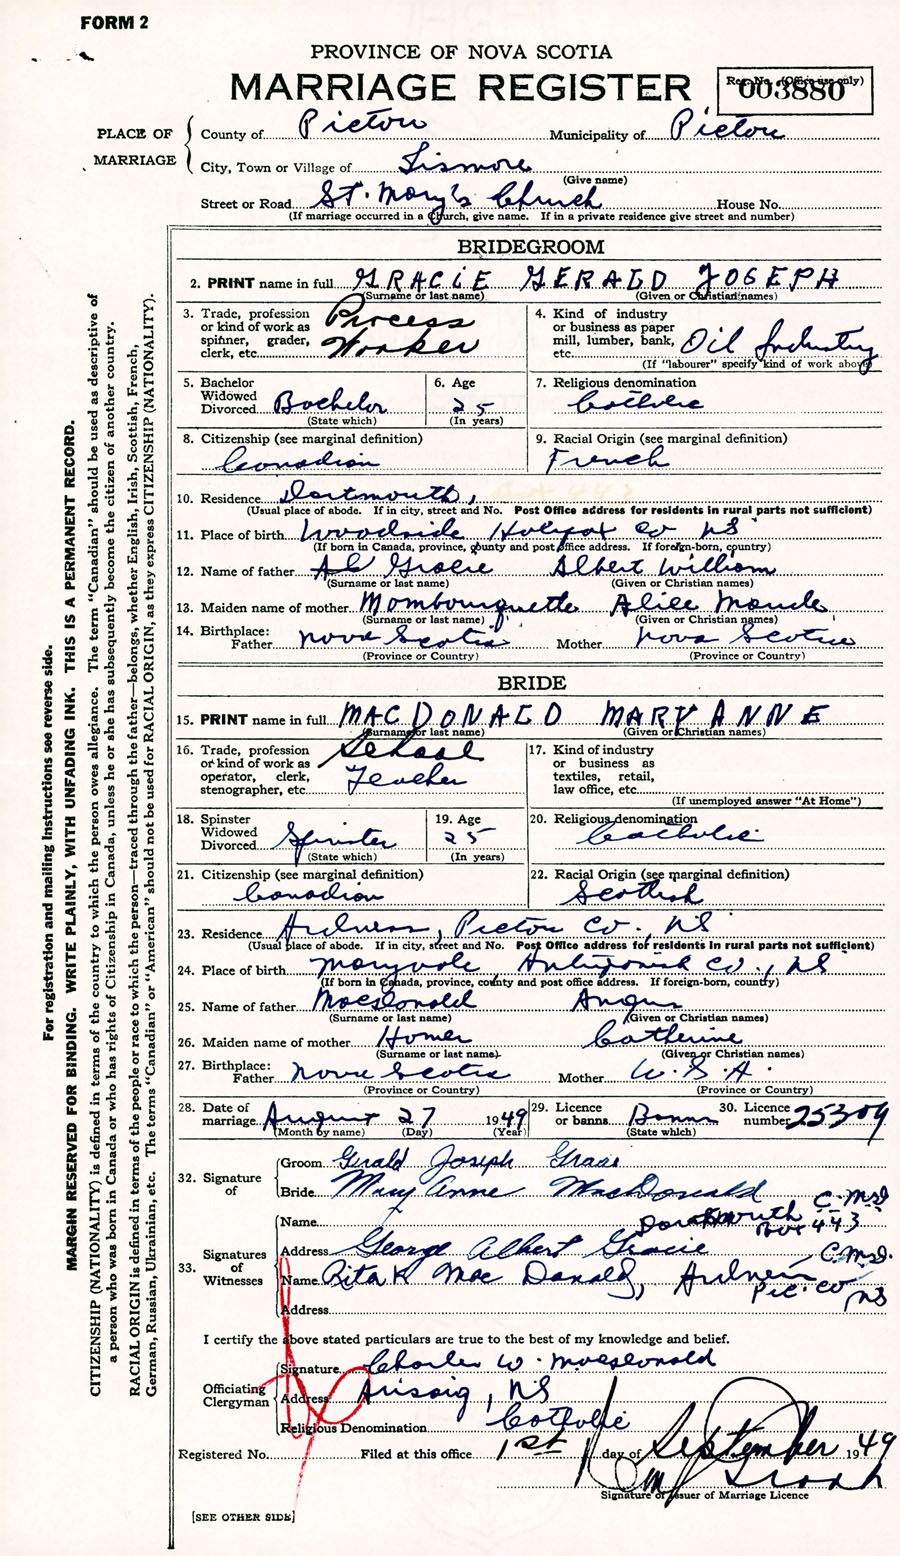 FORM 2
PROVINCE OF NOVA SCOTIA
MARRIAGE REGISTER
Reg. No. (Office use only)
003880
PLACE OF MARRIAGE
County of Pictou Municipality of Pictou
City, Town or Village of Lismore
(Give name)
Street or Road St. Mary's Church House No.
(If marriage occurred in a Church, give name. If in a private residence give street and number)
BRIDEGROOM
2. PRINT name in full GRACIE GERALD JOSEPH
(Surname or last name) (Given or Christian names)
3. Trade, profession or kind of work as spinner, grader, clerk, etc. Process Worker
4. Kind of industry or business as paper mill, lumber, bank, etc. Oil Industry
(If "labourer" specify kind of work above)
5. Bachelor Widowed Divorced Bachelor
(State which)
6. Age 25
(In years)
7. Religious denomination
Catholic
8. Citizenship (see marginal definition)
Canadian
9. Racial Origin (see marginal definition)
French
10. Residence Dartmouth, Box 443
(Usual place of abode. If in city, street and No. Post Office address for residents in rural parts not sufficient)
11. Place of birth Woodside Halifax Co NS
(If born in Canada, province, county and post office address. If foreign-born, country)
12. Name of father Gracie Albert William
(Surname or last name) (Given or Christian names)
13. Maiden name of mother Mombourquette Alice Maude
(Surname or last name) (Given or Christian names)
14. Birthplace: Father Nova Scotia Mother Nova Scotia
(Province or Country) (Province or Country)
BRIDE
15. PRINT name in full MACDONALD MARY ANNE
(Surname or last name) (Given or Christian names)
16. Trade, profession or kind of work as operator, clerk, stenographer, etc. School Teacher
17. Kind of industry or business as textiles, retail, law office, etc.
(If unemployed answer "At Home")
18. Spinster Widowed Divorced Spinster
(State which)
19. Age 25
(In years)
20. Religious denomination
Catholic
21. Citizenship (see marginal definition)
Canadian
22. Racial Origin (see marginal definition)
Scottish
23. Residence Ardness, Pictou Co., NS
(Usual place of abode. If in city, street and No. Post Office address for residents in rural parts not sufficient)
24. Place of birth Maryvale, Antigonish Co., NS
(If born in Canada, province, county and post office address. If foreign-born, country)
25. Name of father MacDonald Angus
(Surname or last name) (Given or Christian names)
26. Maiden name of mother Homer Catherine
(Surname or last name) (Given or Christian names)
27. Birthplace: Father Nova Scotia Mother U.S.A.
(Province or Country) (Province or Country)
28. Date of marriage August 27 1949
(Month by name) (Day) (Year)
29. Licence or banns Banns
(State which)
30. Licence number 25309
32. Signature of
Groom Gerald Joseph Gracie
Bride Mary Anne MacDonald
33. Signatures of Witnesses
Name Dartmouth Box 443 C. McD
Address George Albert Gracie
Name Rita K MacDonald, Ardness Pic. Co NS C. McD.
Address
I certify the above stated particulars are true to the best of my knowledge and belief.
Officiating Clergyman
Signature Charles W. MacDonald
Address Arisaig, NS
Religious Denomination Catholic
Registered No. Filed at this office 1st day of September 1949
Signature of Issuer of Marriage Licence
[SEE OTHER SIDE]
For registration and mailing instructions see reverse side.
MARGIN RESERVED FOR BINDING. WRITE PLAINLY, WITH UNFADING INK. THIS IS A PERMANENT RECORD.
CITIZENSHIP (NATIONALITY) is defined in terms of the country to which the person owes allegiance. The term "Canadian" should be used as descriptive of
a person who was born in Canada or who has rights of Citizenship in Canada, unless he or she has subsequently become the citizen of another country.
RACIAL ORIGIN is defined in terms of the people or race to which the person—traced through the father—belongs, whether English, Irish, Scottish, French,
German, Russian, Ukrainian, etc. The terms "Canadian" or "American" should not be used for RACIAL ORIGIN, as they express CITIZENSHIP (NATIONALITY).